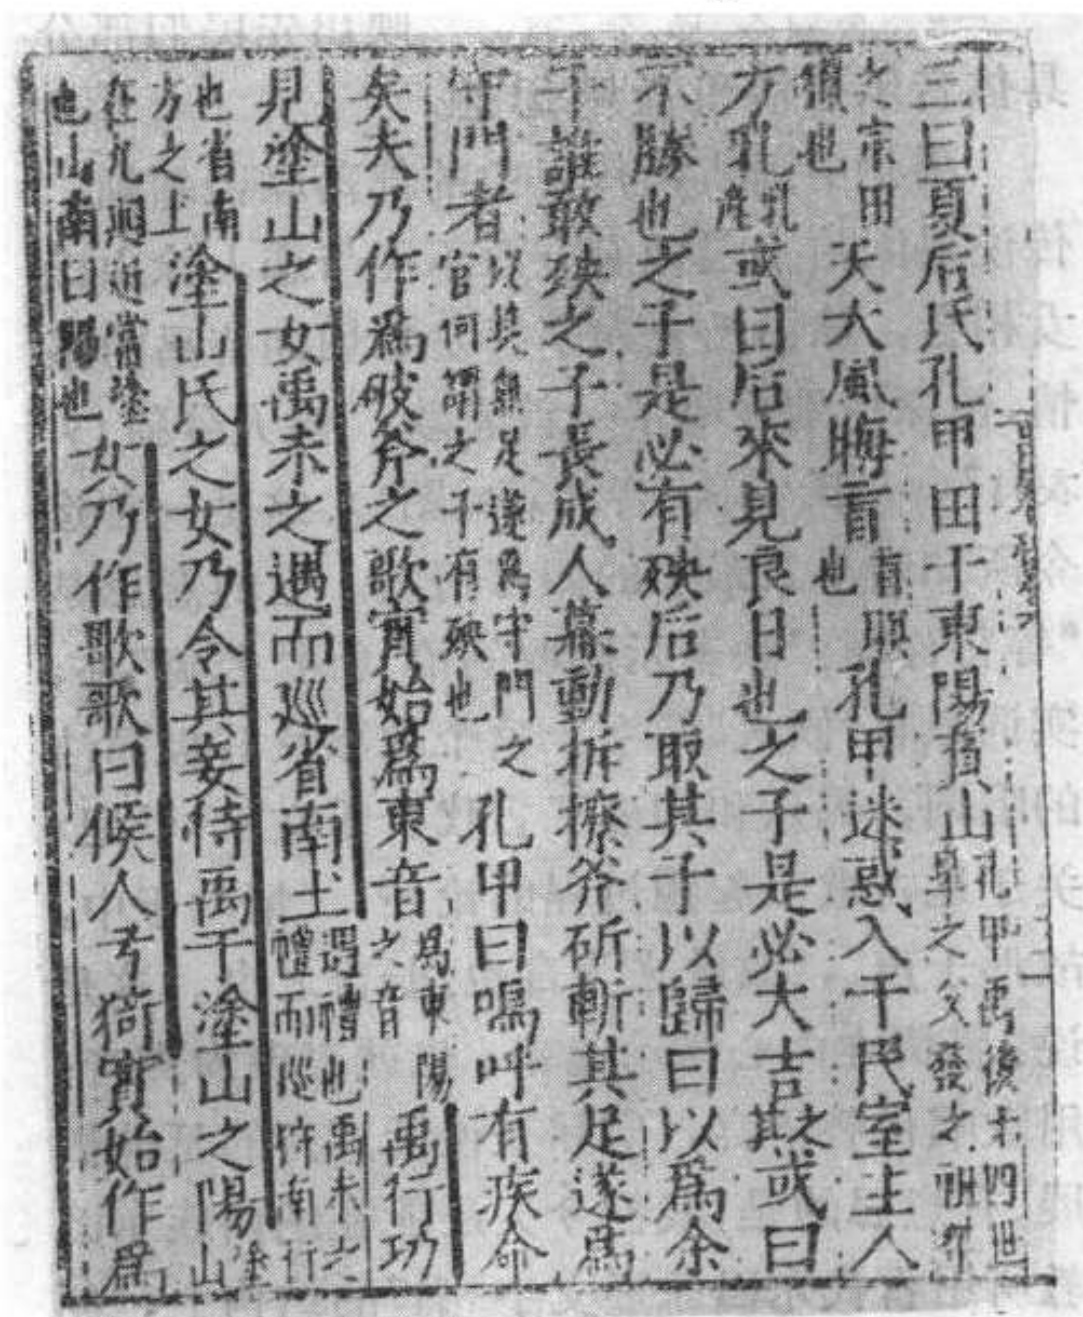 三曰夏后氏孔甲田于東陽萯山孔甲禹後十四世皐之父發之祖桀
之宗田獵也天大風晦盲盲瞑也孔甲迷惑入于民室主人
方乳乳產或曰后來見良日也之子是必大吉之其或曰
不勝也之子是必有殃后乃取其子以歸曰以爲余
子誰敢殃之子長成人幕動拆橑斧斫斬其足遂爲
守門者以其無足遂爲守門之官何謂之子有殃也孔甲曰嗚呼有疾命
矣夫乃作爲破斧之歌實始爲東音爲東陽之音禹行功
見塗山之女禹未之遇而巡省南土遇禮也禹未之禮而巡狩南行
也省南方之上塗山氏之女乃令其妾待禹于塗山之陽塗山
在九迴近當塗也山南曰陽也女乃作歌歌曰候人兮猗實始作爲